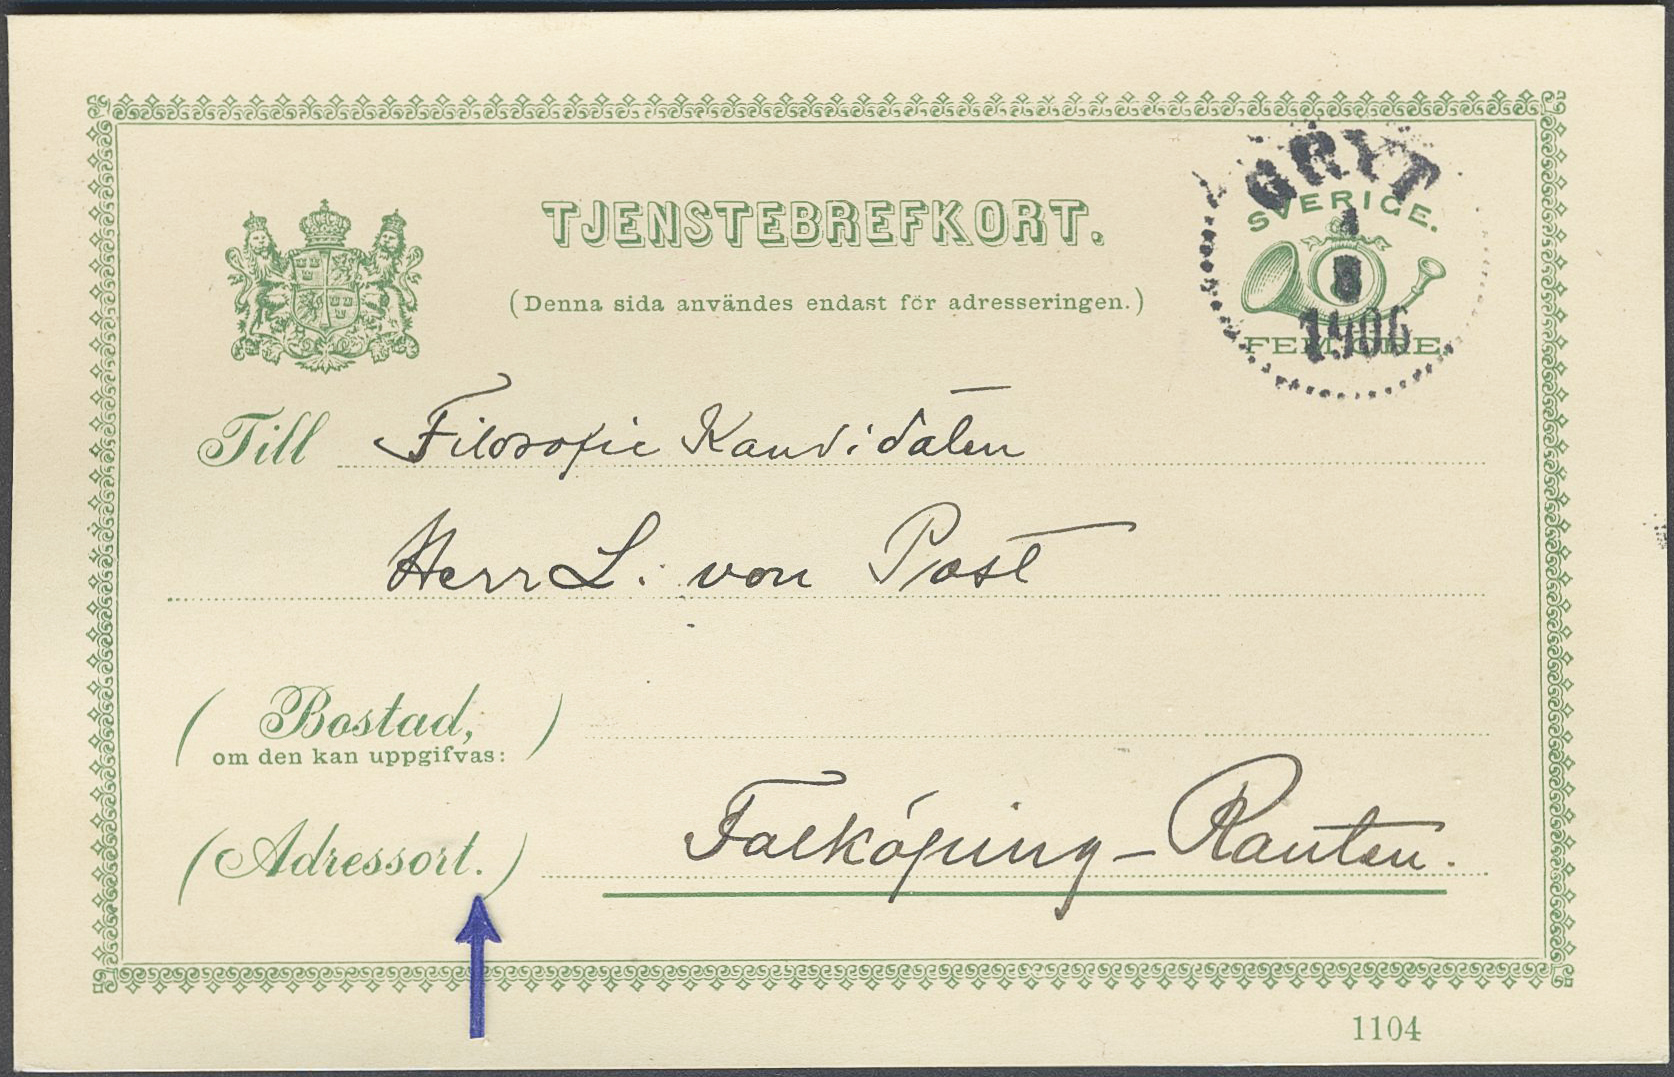 TJENSTEBREFKORT.
(Denna sida användes endast för adresseringen.)
GRYT
1
8
1906
SVERIGE.
FEM ÖRE.
Till Filosofie Kandidaten
Herr L. von Post
(Bostad,
om den kan uppgifvas:)
(Adressort.) Falköping-Ranten.
1104